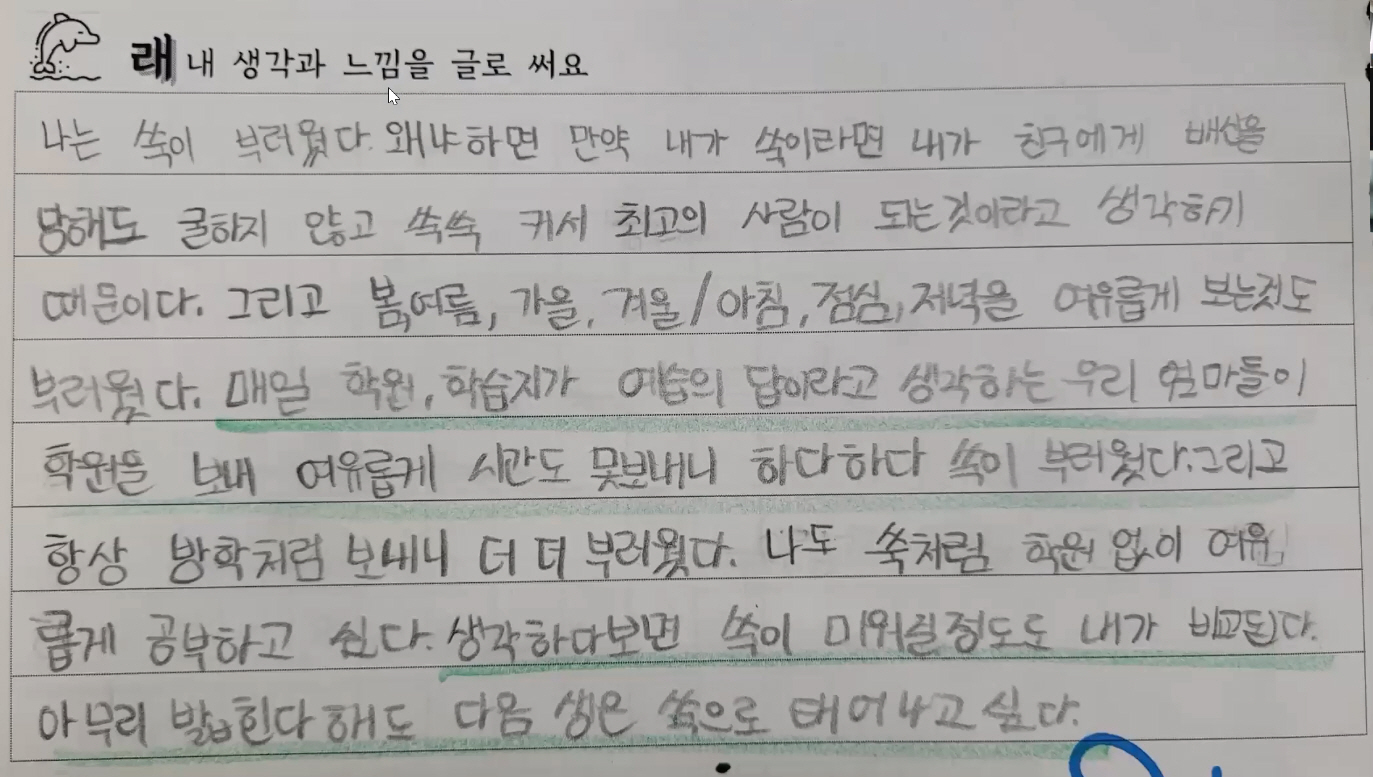 래 내 생각과 느낌을 글로 써요
나는 쑥이 부러웠다. 왜냐하면 만약 내가 쑥이라면 내가 친구에게 배신을
당해도 굴하지 않고 쑥쑥 커서 최고의 사람이 되는것이라고 생각하기
때문이다. 그리고 봄,여름, 가을, 겨울/아침,점심,저녁을 여유롭게 보는것도
부러웠다. 매일 학원, 학습지가 예습의 답이라고 생각하는 우리 엄마들이
학원을 보내 여유롭게 시간도 못보내니 하다하다 쑥이 부러웠다.그리고
항상 방학처럼 보내니 더 더 부러웠다. 나도 쑥처럼 학원 없이 여유
롭게 공부하고 싶다. 생각하다보면 쑥이 미워질정도로 내가 비교된다.
아무리 밟힌다 해도 다음 생은 쑥으로 태어나고 싶다.